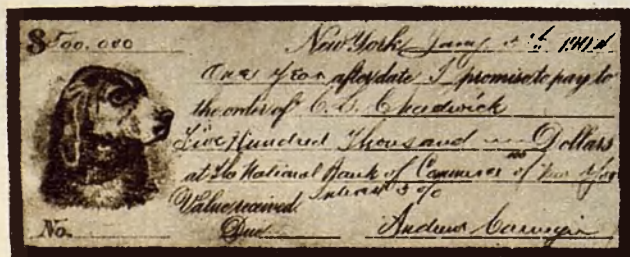 $500.000 New York, Jany
One Year after date I promise to pay to
the order of C. L. Chadwick
Five Hundred Thousand Dollars
at the National Bank of Commerce of New York
Value received. Interest 5 %
No. Due Andrew Carnegie